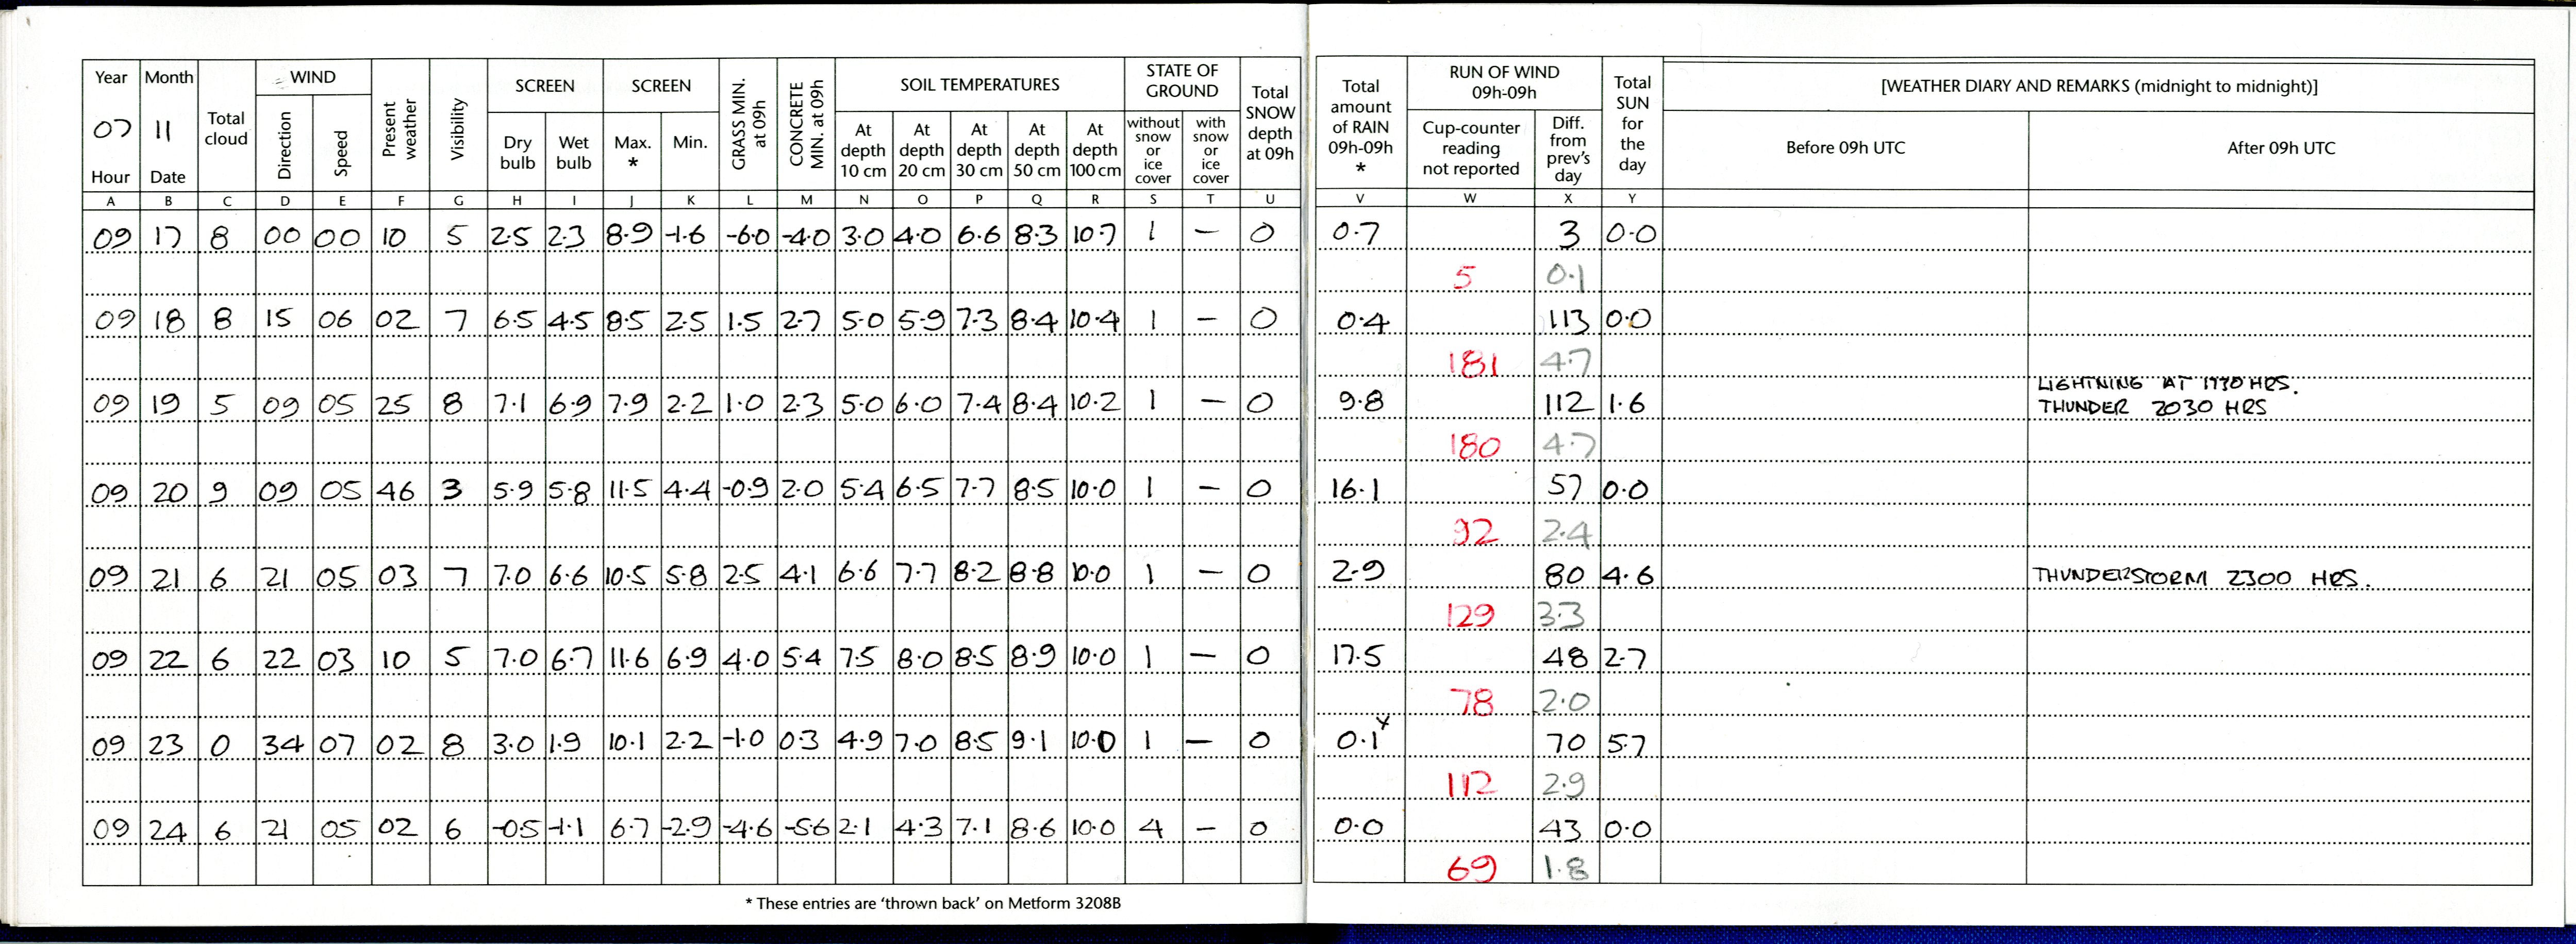 Year Month Total cloud WIND Present weather Visibility SCREEN SCREEN GRASS MIN. at 09h CONCRETE MIN. at 09h SOIL TEMPERATURES STATE OF GROUND Total SNOW depth at 09h Total amount of RAIN 09h-09h * RUN OF WIND 09h-09h Total SUN for the day [WEATHER DIARY AND REMARKS (midnight to midnight)]
07 11 Direction Speed Dry bulb Wet bulb Max. * Min. At depth 10 cm At depth 20 cm At depth 30 cm At depth 50 cm At depth 100 cm without snow or ice cover with snow or ice cover Cup-counter reading not reported Diff. from prev's day Before 09h UTC After 09h UTC
Hour Date
A B C D E F G H I J K L M N O P Q R S T U V W X Y
09 17 8 00 00 10 5 2.5 2.3 8.9 -1.6 -6.0 -4.0 3.0 4.0 6.6 8.3 10.7 1 – 0 0.7 3 0.0
5 0.1
09 18 8 15 06 02 7 6.5 4.5 8.5 2.5 1.5 2.7 5.0 5.9 7.3 8.4 10.4 1 – 0 0.4 113 0.0
181 4.7
LIGHTNING AT 1930 HRS.
09 19 5 09 05 25 8 7.1 6.9 7.9 2.2 1.0 2.3 5.0 6.0 7.4 8.4 10.2 1 – 0 9.8 112 1.6 THUNDER 2030 HRS
180 4.7
09 20 9 09 05 46 3 5.9 5.8 11.5 4.4 -0.9 2.0 5.4 6.5 7.7 8.5 10.0 1 – 0 16.1 57 0.0
92 2.4
09 21 6 21 05 03 7 7.0 6.6 10.5 5.8 2.5 4.1 6.6 7.7 8.2 8.8 10.0 1 – 0 2.9 80 4.6 THUNDERSTORM 2300 HRS.
129 3.3
09 22 6 22 03 10 5 7.0 6.7 11.6 6.9 4.0 5.4 7.5 8.0 8.5 8.9 10.0 1 – 0 17.5 48 2.7
78 2.0
09 23 0 34 07 02 8 3.0 1.9 10.1 2.2 -1.0 0.3 4.9 7.0 8.5 9.1 10.0 1 – 0 0.1 70 5.7
112 2.9
09 24 6 21 05 02 6 -0.5 -1.1 6.7 -2.9 -4.6 -5.6 2.1 4.3 7.1 8.6 10.0 4 – 0 0.0 43 0.0
69 1.8
* These entries are 'thrown back' on Metform 3208B